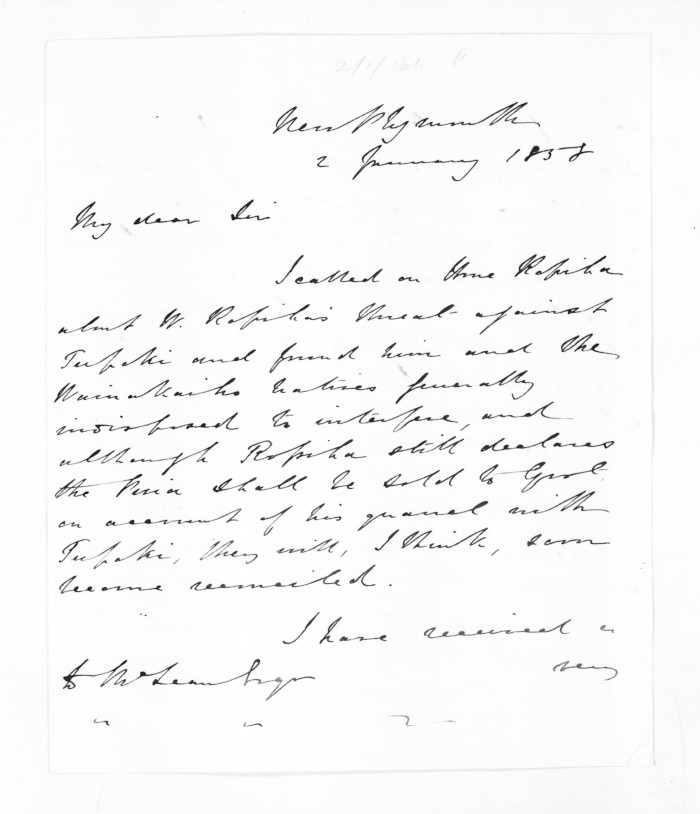 New Plymouth
2 January 1858
My dear Sir
I called on Hone Ropiha
about W. Ropiha's threat against
Tupoki and found him and the
Waiwakaiho natives generally
indisposed to interfere, and
although Ropiha still declares
the Piria shall be sold to Govt.
on account of his quarrel with
Tupoki, they will, I think, soon
become reconciled.
I have received a
very
to McLean Esqr